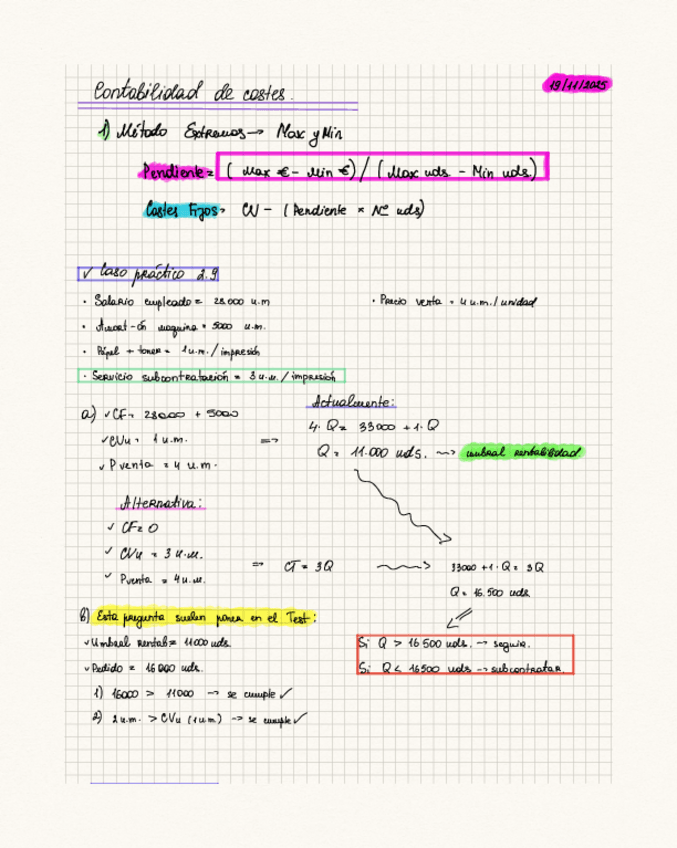 Contabilidad de costes.
19/11/2025
1) Método Extremos → Max y Min
Pendiente = ( Max € - Min €) / ( Max uds. - Min uds.)
Costes Fijos → CV - ( Pendiente × Nº uds)
✓ Caso práctico 2.9
· Salario empleado = 28.000 u.m
· Precio venta = 4 u.m./unidad
· Amort-ón maquina = 5000 u.m.
· Papel + toner = 1 u.m./impresión
· Servicio subcontratación = 3 u.m./impresión
a) ✓ CF → 28000 + 5000
✓ CVu → 1 u.m.
✓ P venta = 4 u.m.
⇒
Actualmente:
4·Q = 33000 + 1·Q
Q = 11.000 uds. → umbral rentabilidad
Alternativa:
✓ CF = 0
✓ CVu = 3 u.m.
✓ Pventa = 4 u.m.
⇒ CT = 3Q → 33000 + 1·Q = 3Q
Q = 16.500 uds.
b) Esta pregunta suelen poner en el Test:
✓ Umbral rentab = 11000 uds.
✓ Pedido = 16000 uds.
1) 16000 > 11000 → se cumple ✓
2) 2 u.m. > CVu (1 u.m.) → se cumple ✓
Si Q > 16 500 uds. → seguir.
Si Q < 16500 uds → subcontratar.